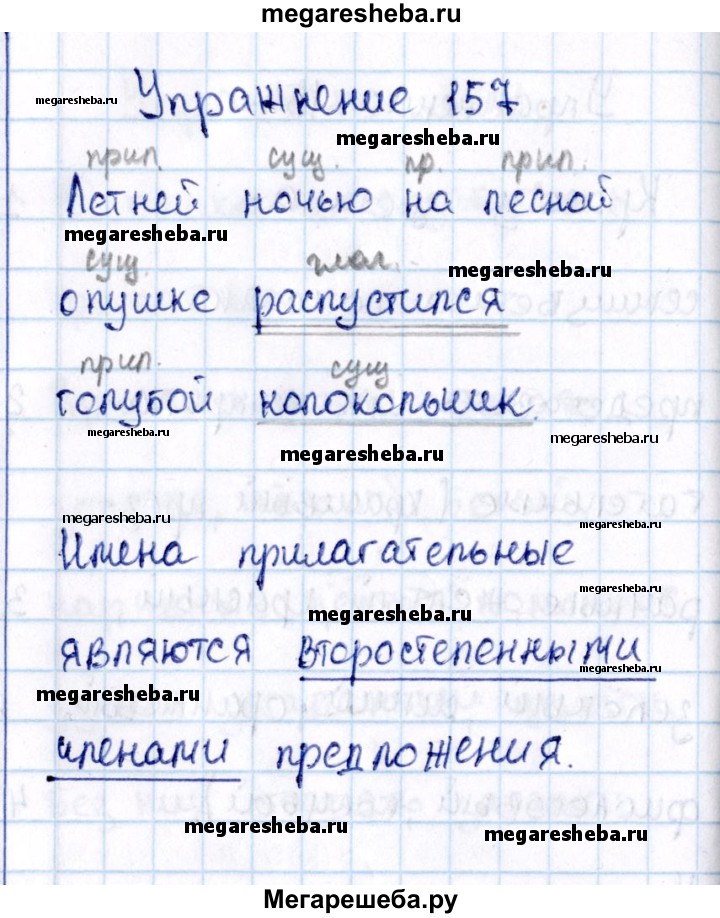 megaresheba.ru
megaresheba.ru
Упражнение 157
megaresheba.ru
прил. сущ. пр. прил.
Летней ночью на лесной
megaresheba.ru
сущ. глаг. megaresheba.ru
опушке распустился
прил. сущ
голубой колокольчик.
megaresheba.ru megaresheba.ru
megaresheba.ru
megaresheba.ru megaresheba.ru
Имена прилагательные
megaresheba.ru
megaresheba.ru
являются второстепенными
megaresheba.ru
членами предложения.
megaresheba.ru megaresheba.ru
Мегарешеба.ру